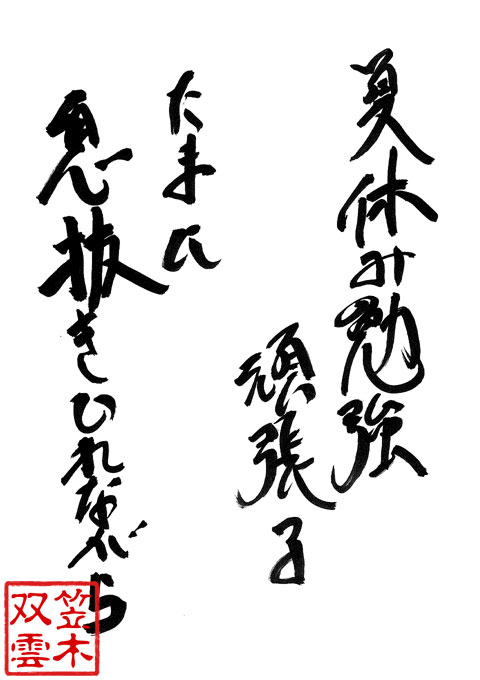 夏休み勉強
頑張る
たまに
息抜きいれながら
笠木
双雲